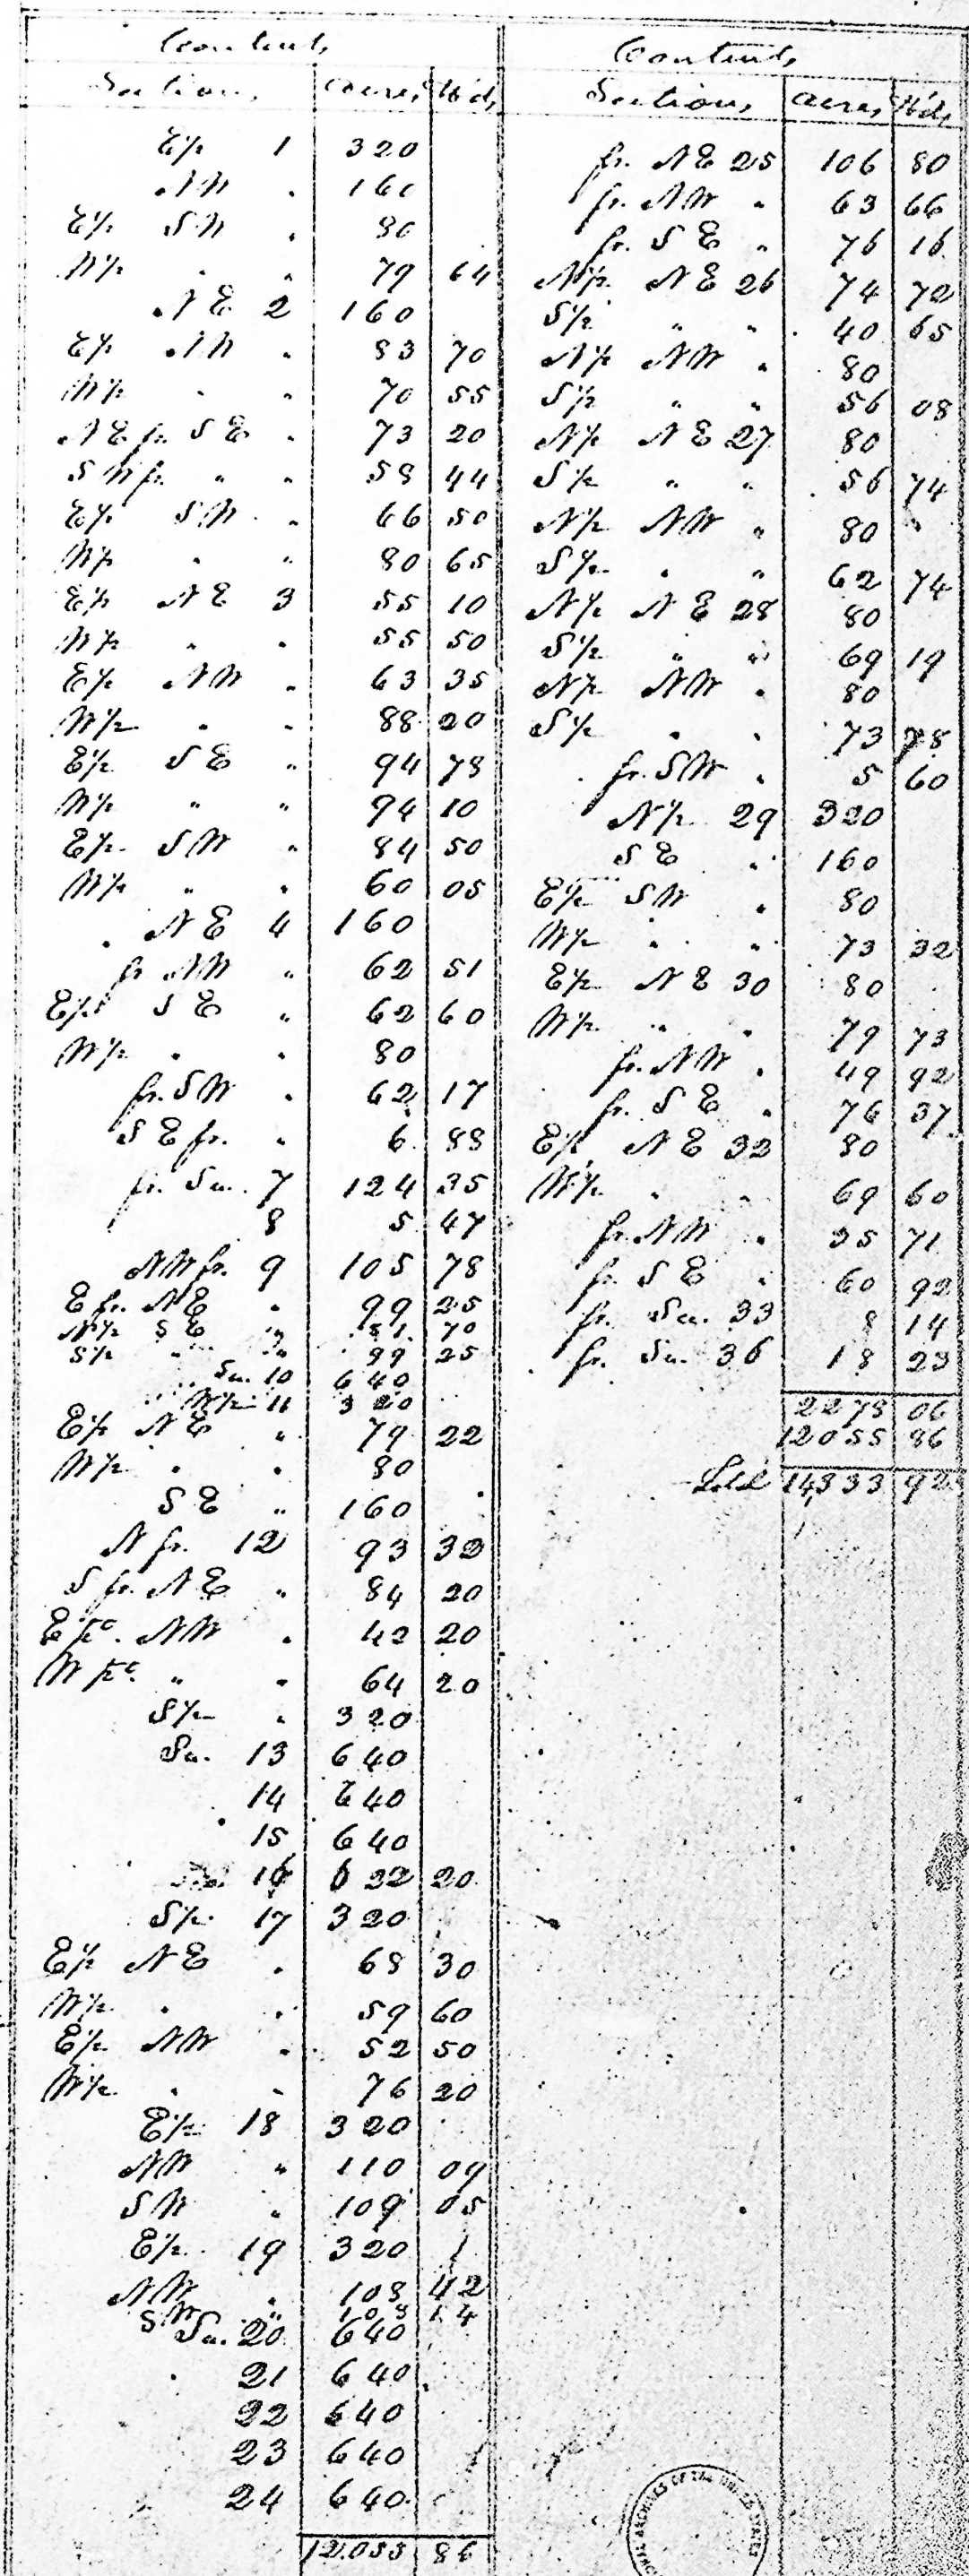 Contents
Sections Acres H'd,
E½ 1 320
NW " 160
E½ SW " 80
W½ " " 79 64
NE 2 160
E½ NW " 83 70
W½ " " 70 55
NE fr. SE " 73 20
SW fr. " " 58 44
E½ SW " 66 50
W½ " " 80 65
E½ NE 3 55 10
W½ " " 55 50
E½ NW " 63 35
W½ " " 88 20
E½ SE " 94 78
W½ " " 94 10
E½ SW " 84 50
W½ " " 60 05
NE 4 160
fr NW " 62 51
E½ SE " 62 60
W½ " " 80
fr. SW " 62 17
SE fr. " 6 88
fr. Sec. 7 124 35
8 5 47
NW fr. 9 105 78
E fr. NE " 99 25
N½ SE " 81 70
S½ " " 99 25
Sec. 10 640
W½ 11 320
E½ NE " 79 22
W½ " " 80
SE " 160
N fr. 12 93 32
S fr. NE " 84 20
E pc. NW " 42 20
W pc. " " 64 20
S½ " 320
Sec. 13 640
14 640
15 640
16 622 20
S½ 17 320
E½ NE " 68 30
W½ " " 59 60
E½ NW " 52 50
W½ " " 76 20
E½ 18 320
NW " 110 09
SW " 109 05
E½ 19 320
NW " 108 42
SW " 108 14
Sec. 20 640
21 640
22 640
23 640
24 640
12.055 86
Contents
Sections Acres H'd,
fr. NE 25 106 80
fr. NW " 63 66
fr. SE " 76 16
N½ NE 26 74 72
S½ " " 40 65
N½ NW " 80
S½ " " 56 08
N½ NE 27 80
S½ " " 56 74
N½ NW " 80
S½ " " 62 74
N½ NE 28 80
S½ " " 69 19
N½ NW " 80
S½ " " 73 78
fr. SW " 5 60
N½ 29 320
SE " 160
E½ SW " 80
W½ " " 73 32
E½ NE 30 80
W½ " " 79 73
fr. NW " 49 92
fr. SE " 76 37
E½ NE 32 80
W½ " " 69 60
fr. NW " 35 71
fr. SE " 60 92
fr. Sec. 33 8 14
fr. Sec. 36 18 23
2278 06
12055 86
Total 14,333 92